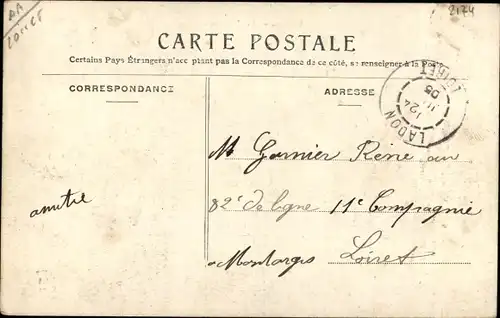 2174
CARTE POSTALE
Certains Pays Étrangers n'acceptant pas la Correspondance de ce côté, se renseigner à la Poste
CORRESPONDANCE
ADRESSE
LADON
LOIRET
05
M Garnier Rene au
82e de ligne 11e Compagnie
Montargis Loiret